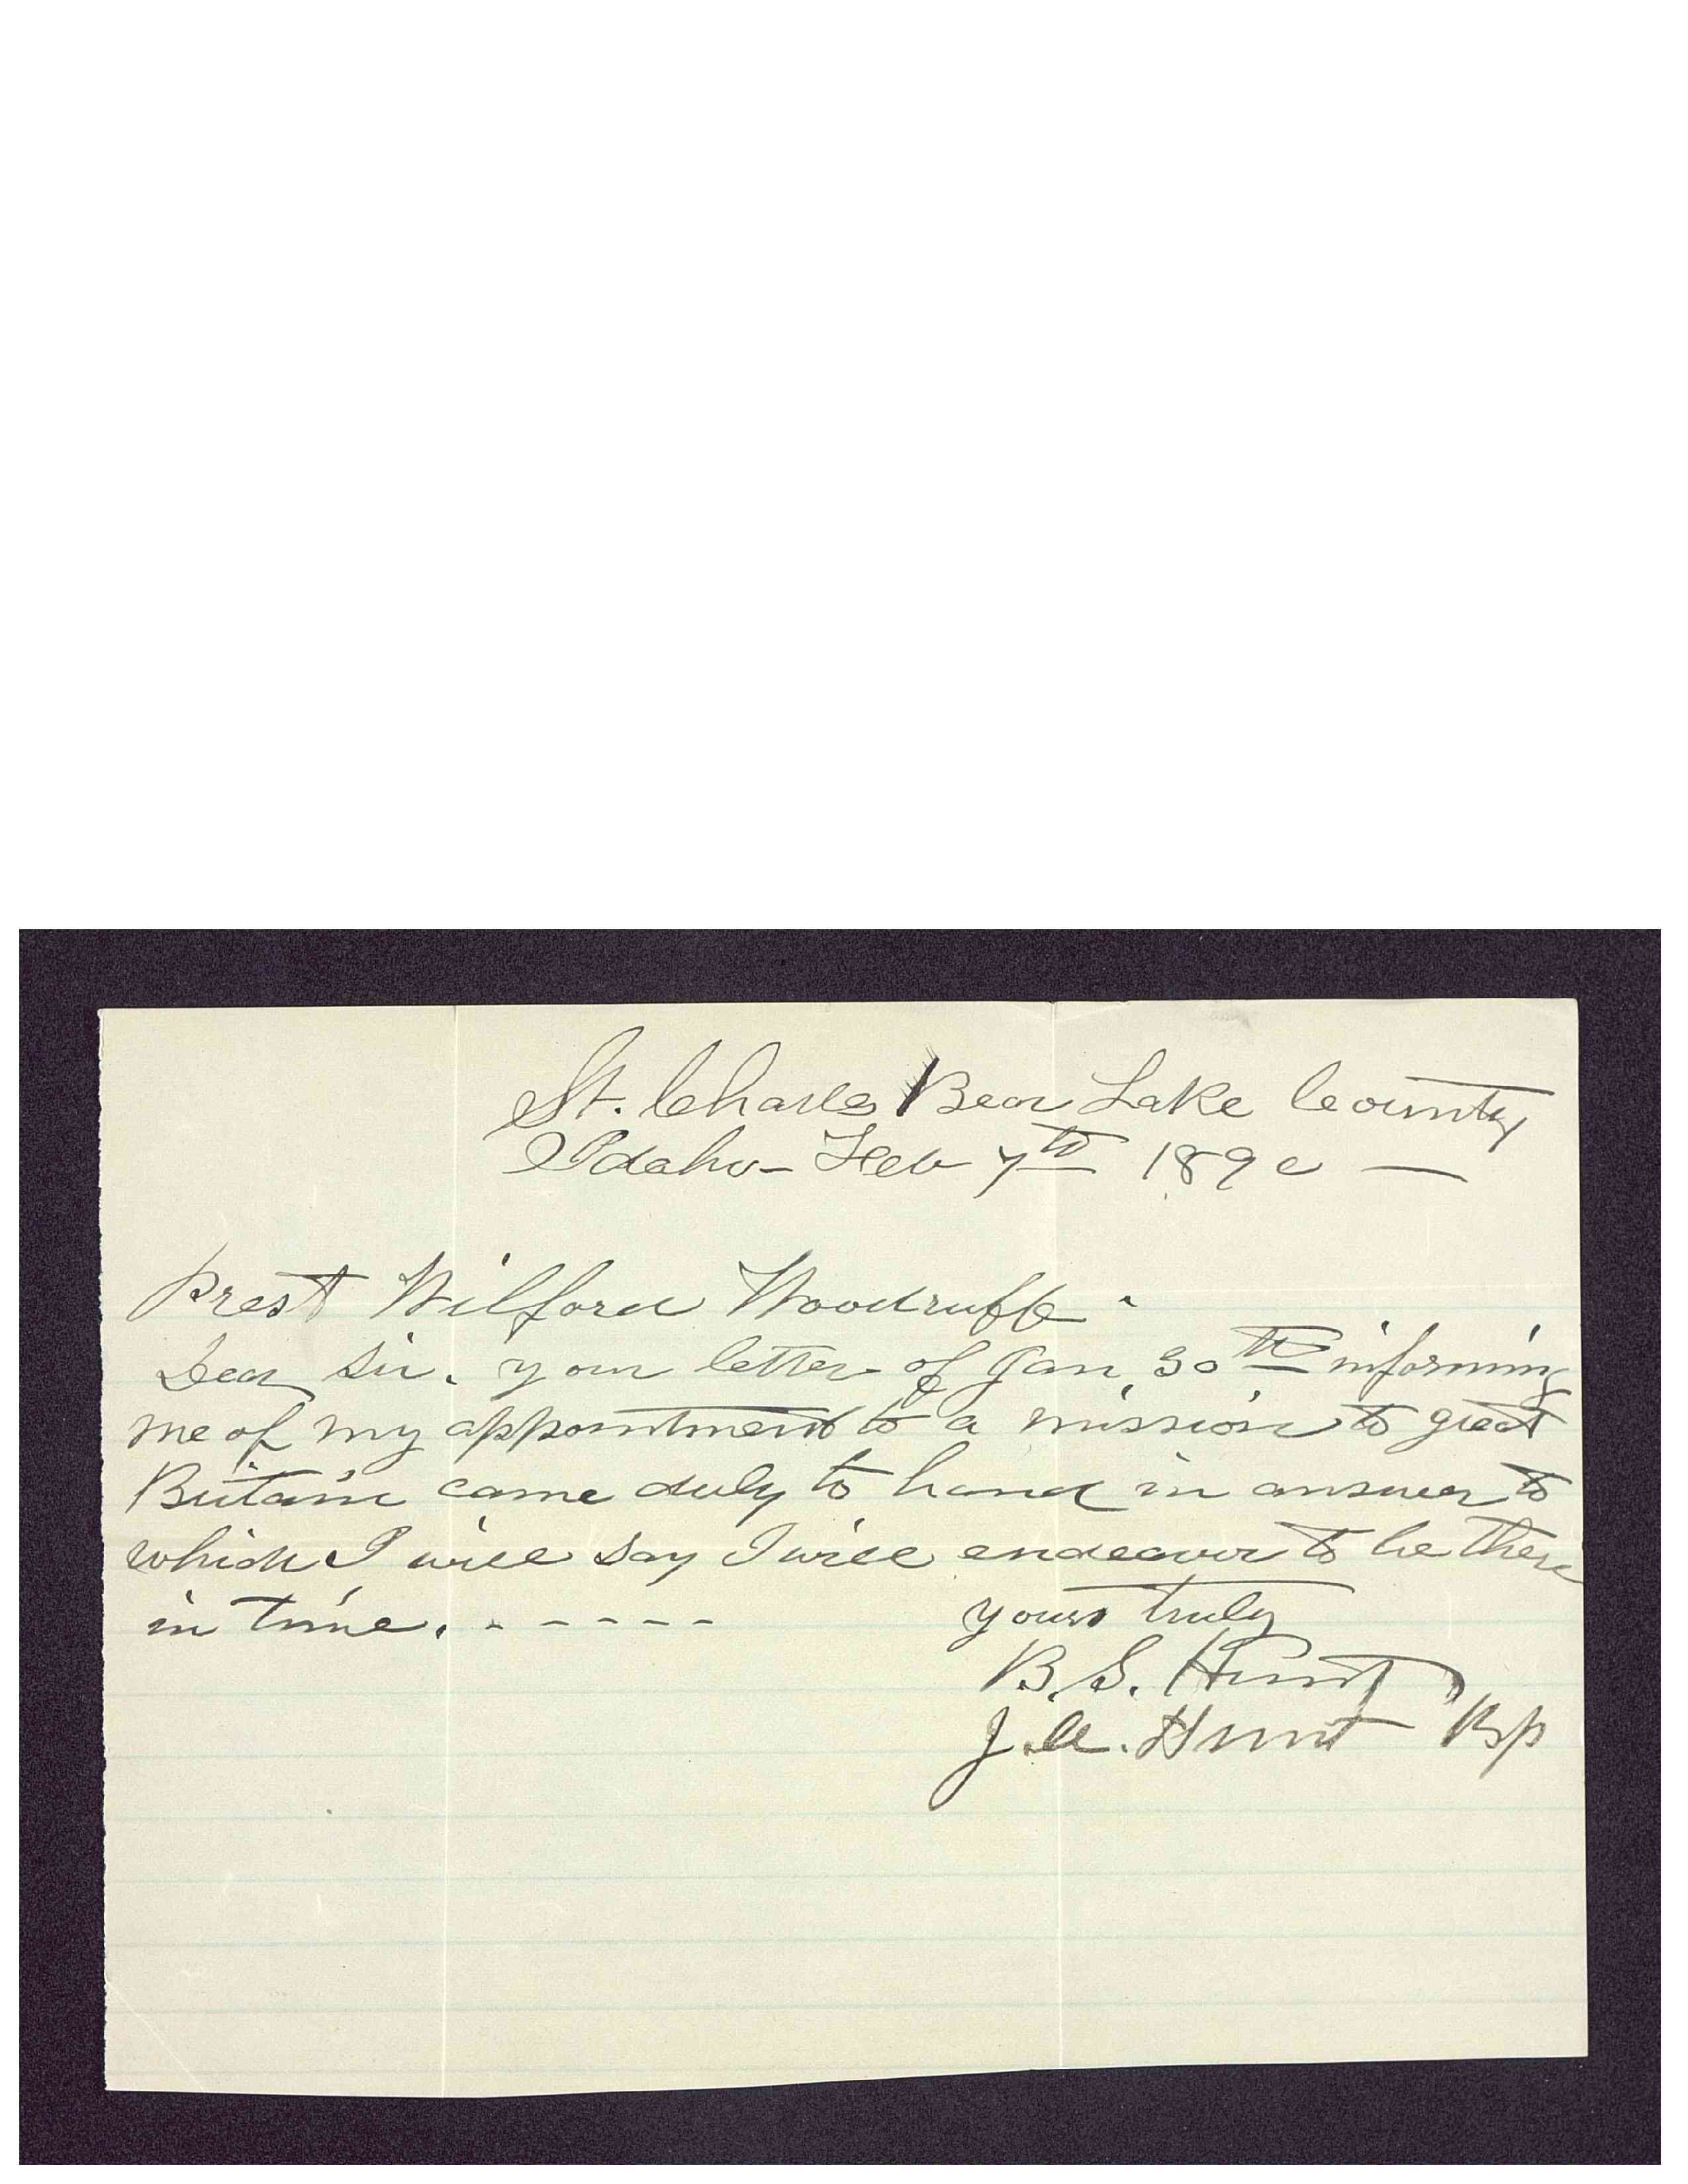 St. Charles Bear Lake County
Idaho - Feb 7th 1890 —
Prest Wilford Woodruff.
Dear Sir. your letter of Jan, 30th informing
me of my appointment to a mission to great
Britain came duly to hand in answer to
which I will say I will endeavor to be there
in time. - - - - -
yours truly
B. S. Hunt
J. A. Hunt Bp